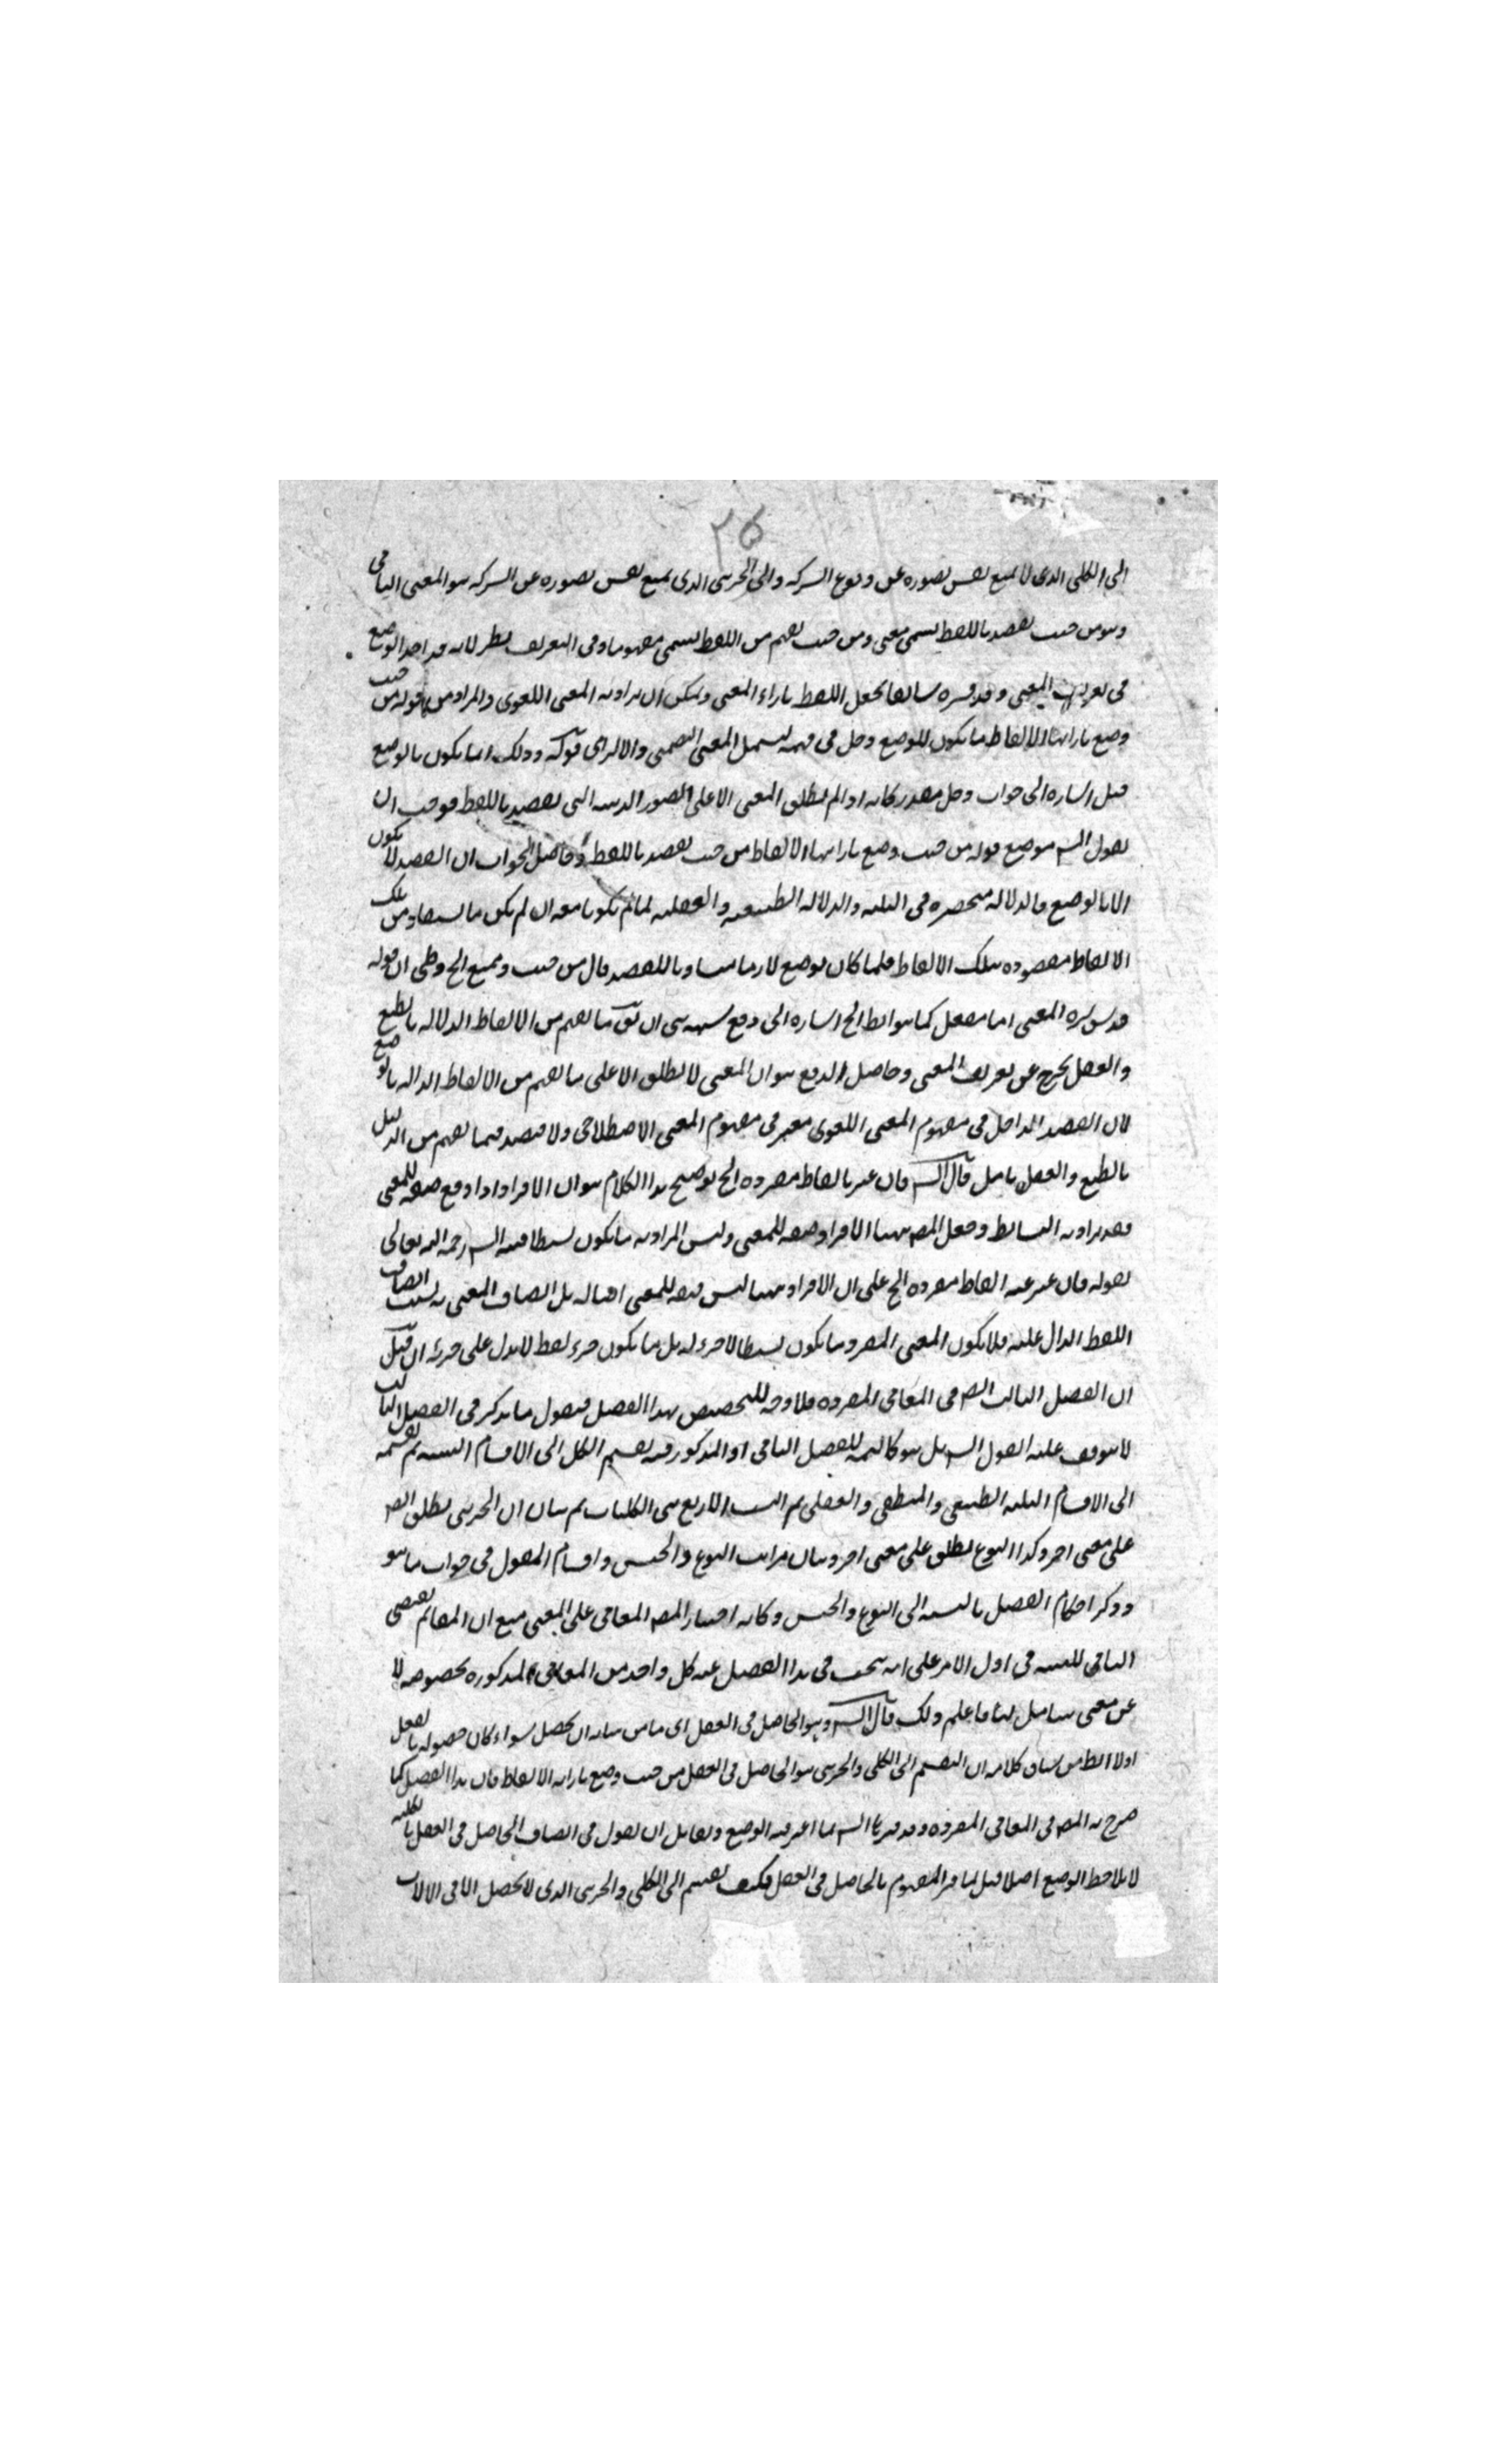 ٢٥
الى الكلى الذى لا يمنع نفس تصوره عن وقوع الشركة والى الجزئى الذى يمنع نفس تصوره عن الشركة هو المعنى الثانى
وهو من حيث يقصد باللفظ يسمى معنى ومن حيث يفهم من اللفظ يسمى مفهوما وفى التعريف نظر لانه قد اخذ الوضع
فى تعريف المعنى وقد فسره سابقا بجعل اللفظ بازاء المعنى ويمكن ان يراد به المعنى اللغوى والمراد من قوله من حيث
وضع بازائها الالفاظ ما يكون للوضع دخل فى فهمه ليشمل المعنى التضمنى والالتزامى قوله وذلك انما يكون بالوضع
قيل اشارة الى جواب دخل مقدر كانه اذا لم يطلق المعنى الا على الصور الذهنية التى تقصد باللفظ فوجب ان
يقول الش موضع قوله من حيث وضع بازائها الالفاظ من حيث يقصد باللفظ وحاصل الجواب ان القصد لا يكون
الا بالوضع فالدلالة منحصرة فى الثلثة والدلالة الطبيعية والعقلية لما لم يكونا معه ان لم يكن ما يستفاد من تلك
الالفاظ مقصودة بتلك الالفاظ فلما كان الوضع لازما مساويا للقصد قال من حيث وضع الخ وظنى ان قوله
قدس سره المعنى اما مفعل كما هو الظ الخ اشارة الى دفع شبهة هى ان يق ما يفهم من الالفاظ الدلالة بالطبع
والعقل يخرج عن تعريف المعنى وحاصل الدفع هو ان المعنى لا يطلق الا على ما يفهم من الالفاظ الدالة بالوضع
لان القصد الداخل فى مفهوم المعنى اللغوى معتبر فى مفهوم المعنى الاصطلاحى ولا قصد فيما يفهم من الدليل
بالطبع والعقل تامل قال الش فان عبر بالفاظ مفردة الخ توضيح هذا الكلام هو ان الافراد اذا وقع صفة للمعنى
فقد يراد به البسائط وجعل المص ههنا الافراد صفة للمعنى وليس المراد به ما يكون بسيطا فنبه الش رحمه الله تعالى
بقوله فان عبر عنه الفاظ مفردة الخ على ان الافراد ههنا ليس صفة للمعنى اصالة بل اتصاف المعنى به بسبب اتصاف
اللفظ الدال عليه فلا يكون المعنى المفرد ما يكون بسيطا لا جزء له بل ما يكون جزء لفظ لا يدل على جزئه ان قيل
ان الفصل الثالث ايض فى المعانى المفردة فلا وجه للتخصيص بهذا الفصل فنقول ما يذكر فى الفصل الثالث
لا يتوقف عليه القول الش بل هو كالتتمة للفصل الثانى اذ المذكور فيه تقسيم الكل الى الاقسام الستة ثم تقسيمه
الى الاقسام الثلثة الطبيعى والمنطقى والعقلى ثم النسب الاربع بين الكليات ثم بيان ان الجزئى يطلق ايض
على معنى اخر وكذا النوع يطلق على معنى اخر وبيان مراتب النوع والجنس واقسام المقول فى جواب ما هو
وذكر احكام الفصل بالنسبة الى النوع والجنس وكانه اختار المص المعانى على المعنى مع ان المقام يقتضى
الثانى للتنبيه فى اول الامر على انه يبحث فى هذا الفصل عنه كل واحد من المعانى المذكورة بخصوصه لا
عن معنى شامل لها فاعلم ذلك قال الش وهو الحاصل فى العقل اى ما من شانه ان يحصل سواء كان حصوله بالفعل
اولا الظ من سياق كلامه ان التقسيم الى الكلى والجزئى هو الحاصل فى العقل من حيث وضع بازائه الالفاظ فان هذا الفصل كما
صرح به المص فى المعانى المفردة وقد فسرها الش بما اعتبر فيه الوضع ولقائل ان يقول فى اتصاف الحاصل فى العقل بالكلية
لا يلاحظ الوضع اصلا قيل لما فسر المفهوم بالحاصل فى العقل فكيف تقسم الى الكلى والجزئى الذى لا يحصل الا فى الالات